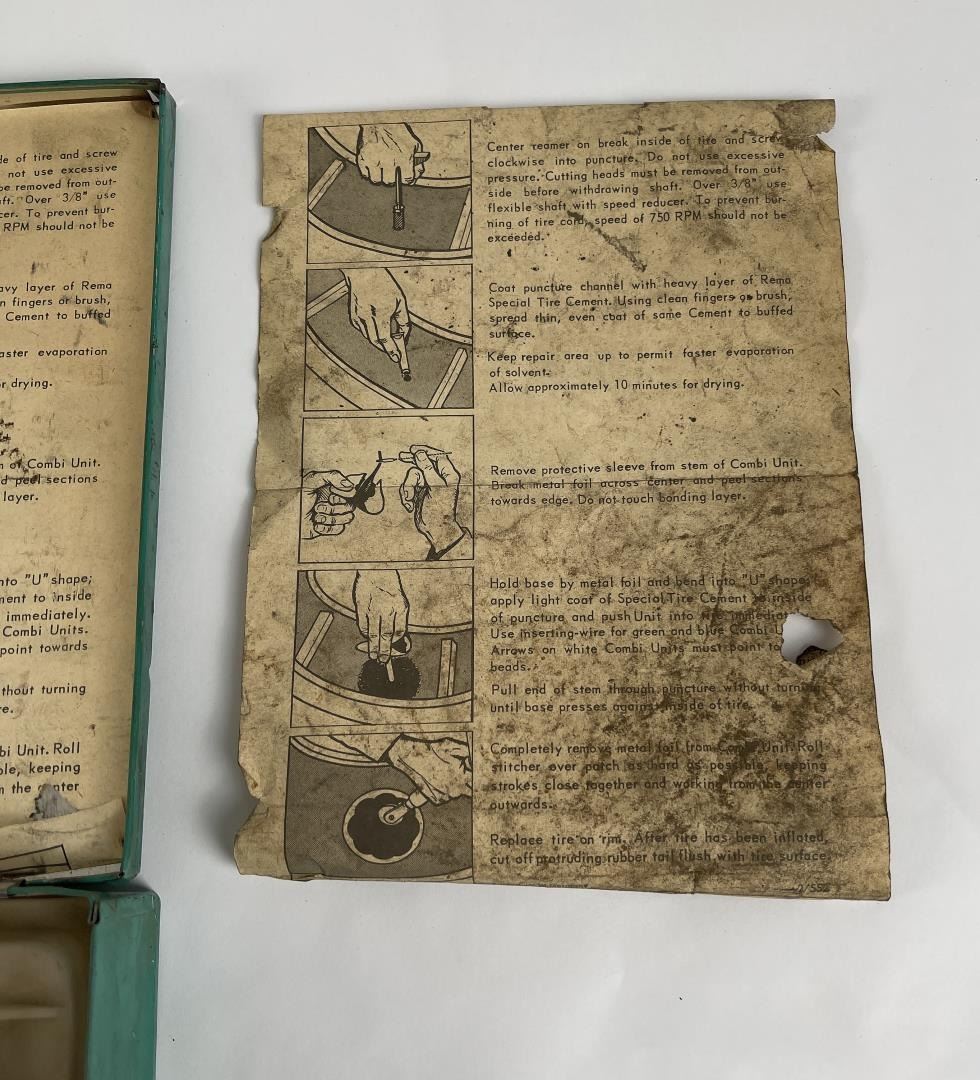 de of tire and screw
not use excessive
be removed from out-
aft. Over 3/8" use
cer. To prevent bur-
RPM should not be
avy layer of Rema
n fingers or brush,
Cement to buffed
aster evaporation
or drying.
of Combi Unit.
d peel sections
layer.
nto "U" shape;
ment to inside
immediately.
Combi Units.
point towards
thout turning
re.
bi Unit. Roll
ble, keeping
m the center
Center reamer on break inside of tire and screw
clockwise into puncture. Do not use excessive
pressure. Cutting heads must be removed from out-
side before withdrawing shaft. Over 3/8" use
flexible shaft with speed reducer. To prevent bur-
ning of tire cord, speed of 750 RPM should not be
exceeded.
Coat puncture channel with heavy layer of Rema
Special Tire Cement. Using clean fingers or brush,
spread thin, even coat of same Cement to buffed
surface.
Keep repair area up to permit faster evaporation
of solvent.
Allow approximately 10 minutes for drying.
Remove protective sleeve from stem of Combi Unit.
Break metal foil across center and peel sections
towards edge. Do not touch bonding layer.
Hold base by metal foil and bend into "U" shape;
apply light coat of Special Tire Cement to inside
of puncture and push Unit into tire immediat
Use inserting-wire for green and blue Combi U
Arrows on white Combi Units must point to
beads.
Pull end of stem through puncture without turning
until base presses against inside of tire.
Completely remove metal foil from Combi Unit. Roll
stitcher over patch as hard as possible, keeping
strokes close together and working from the center
outwards.
Replace tire on rim. After tire has been inflated,
cut off protruding rubber tail flush with tire surface.